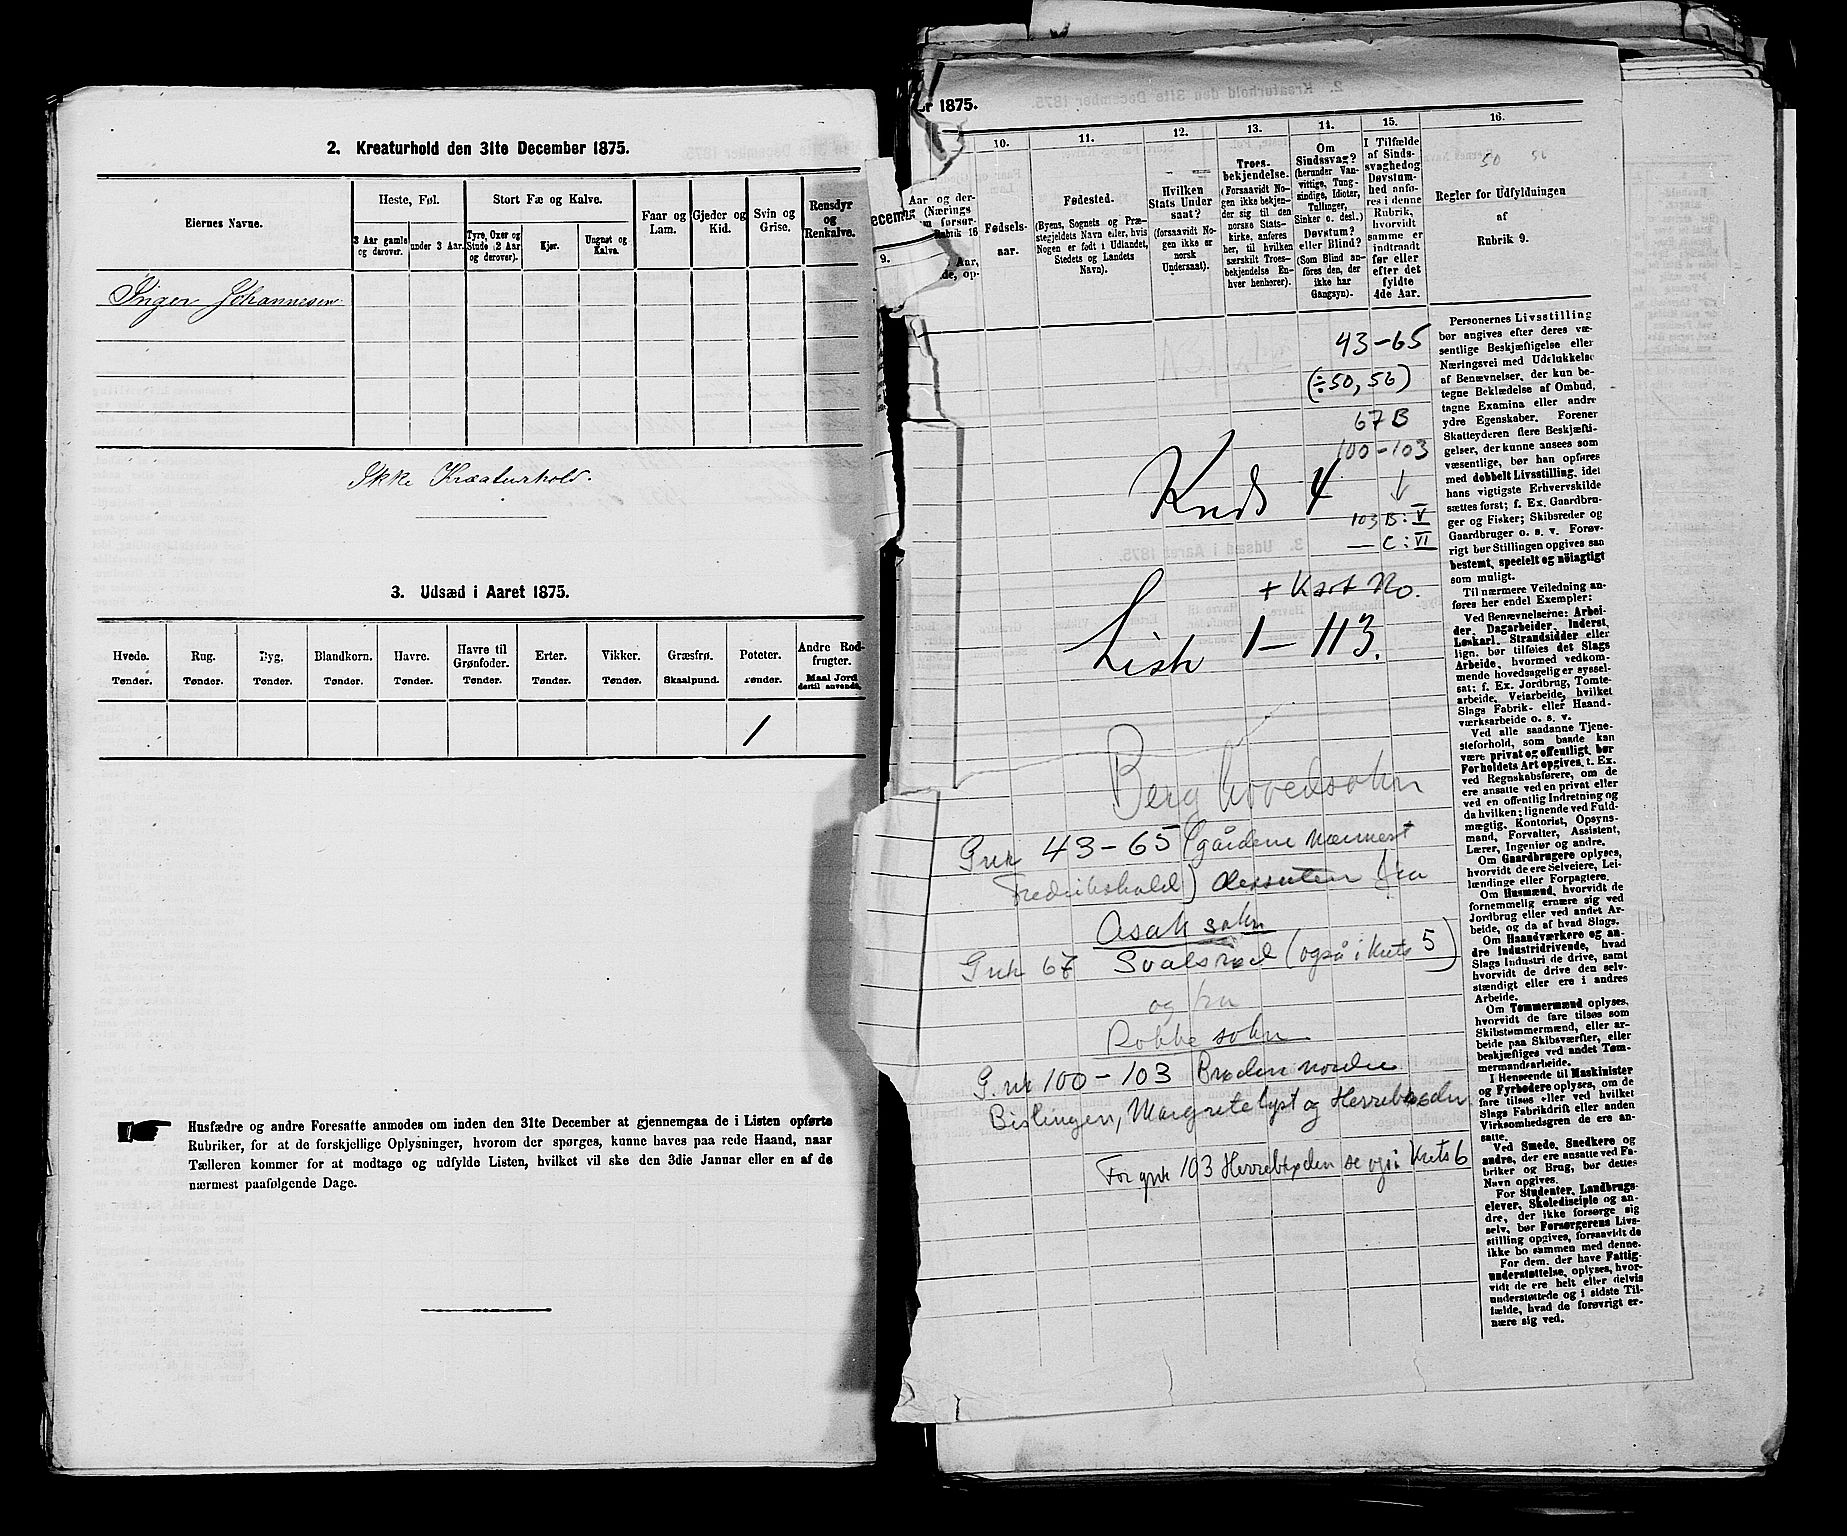 2. Kreaturhold den 31te December 1875.
Eiernes Navne.
Heste, Føl.
Stort Fæ og Kalve.
Faar og Lam.
Gjeder og Kid.
Svin og Grise.
Rensdyr og Renkalve.
3 Aar gamle og derover.
under 3 Aar.
Tyre, Oxer og Stude (2 Aar og derover).
Kjør.
Ungnøt og Kalve.
Inger Johannesen
Ikke Kreaturhold.
3. Udsæd i Aaret 1875.
Hvede. Rug. Byg. Blandkorn. Havre. Havre til Grønfoder. Erter. Vikker. Græsfrø. Poteter. Andre Rodfrugter.
Tønder. Tønder. Tønder. Tønder. Tønder. Tønder. Tønder. Tønder. Skaalpund. Tønder. Maal Jord dertil anvendt.
1
Husfædre og andre Foresatte anmodes om inden den 31te December at gjennemgaa de i Listen opførte
Rubriker, for at de forskjellige Oplysninger, hvorom der spørges, kunne haves paa rede Haand, naar
Tælleren kommer for at modtage og udfylde Listen, hvilket vil ske den 3die Januar eller en af de
nærmest paafølgende Dage.
er 1875.
9.
10.
Fødsels-
aar.
11.
Fødested.
(Byens, Sognets og Præ-
stegjeldets Navn eller, hvis
Nogen er født i Udlandet,
Stedets og Landets
Navn).
12.
Hvilken
Stats Under
saat?
(forsaavidt No-
gen ikke er
norsk
Undersaat).
13.
Troes-
bekjendelse.
(Forsaavidt No-
gen ikke bekjen-
der sig til den
norske Stats-
kirke, anføres
her, til hvilken
særskilt Troes-
bekjendelse En-
hver henhører).
14.
Om
Sindssvag?
(herunder Van-
vittige, Tung-
sindige, Idioter,
Tullinger,
Sinker o. desl.)
Døvstum?
eller Blind?
(Som Blind an-
føres den, der
ikke har
Gangsyn).
15.
I Tilfælde
af Sinds-
svaghedog
Døvstum-
hed anfø-
res i denne
Rubrik,
hvorvidt
samme er
indtraadt
før eller
efter det
fyldte
4de Aar.
16.
50 56
Regler for Udfyldningen
af
Rubrik 9.
43-65
(÷50, 56)
67 B
100-103
Kreds 4
↓
103 B: V
— C: VI
+ Kart No.
Liste 1-113.
Berg hovedsokn
Gnr 43-65 (gårdene nærmest
Fredrikshald) dessuten fra
Asak sokn
Gnr 67 Svalsrød (også i krets 5)
og fra
Rokke sokn
G.nr 100-103 Brøden nordre
Bislingen, Margretelyst og Herrebrøden
For gnr 103 Herrebrøden se også Krets 6
Personernes Livsstilling
bør angives efter deres væ-
sentlige Beskjæftigelse eller
Næringsvei med Udelukkelse
af Benævnelser, der kun be-
tegne Beklædelse af Ombud,
tagne Examina eller andre
ydre Egenskaber. Forener
Skatteyderen flere Beskjæfti-
gelser, der kunne ansees som
væsentlige, bør han opføres
med dobbelt Livsstilling, idet
hans vigtigste Erhvervskilde
sættes først; f. Ex. Gaardbru-
ger og Fisker; Skibsreder og
Gaardbruger o. s. v. Forøv-
rigt bør Stillingen opgives saa
bestemt, specielt og nöiagtigt
som muligt.
Til nærmere Veiledning an-
føres her endel Exempler:
Ved Benævnelserne: Arbei-
der, Dagarbeider, Inderst,
Løskarl, Strandsidder eller
lign. bør tilføies det Slags
Arbeide, hvormed vedkom-
mende hovedsagelig er syssel-
sat; f. Ex. Jordbrug, Tomte-
arbeide, Veiarbeide, hvilket
Slags Fabrik- eller Haand-
værksarbeide o. s. v.
Ved alle saadanne Tjene-
steforhold, som baade kan
være privat og offentligt, bør
Forholdets Art opgives, t. Ex.
ved Regnskabsførere, om de
ere ansatte ved en privat eller
ved en offentlig Indretning og
da hvilken; lignende ved Fuld-
mægtig, Kontorist, Opsyns-
mand, Forvalter, Assistent,
Lærer, Ingeniør og andre.
Om Gaardbrugere oplyses,
hvorvidt de ere Selveiere, Lei-
lændinge eller Forpagtere.
Om Husmænd, hvorvidt de
fornemmelig ernære sig ved
Jordbrug eller ved andet Ar-
beide, og da af hvad Slags.
Om Haandværkere og an-
dre Industridrivende, hvad
Slags Industri de drive, samt
hvorvidt de drive den selv-
stændigt eller ere i andres
Arbeide.
Om Tømmermænd oplyses,
hvorvidt de fare tilsøs som
Skibstømmermænd, eller ar-
beide paa Skibsværfter, eller
beskjæftiges ved andet Tøm-
mermandsarbeide.
I Henseende til Maskinister
og Fyrbødere oplyses, om de
fare tilsøs eller ved hvilket
Slags Fabrikdrift eller anden
Virksomhedsgren de ere an-
satte.
Ved Smede, Snedkere og
andre, der ere ansatte ved Fa-
briker og Brug, bør dettes
Navn opgives.
For Studenter, Landbrugs-
elever, Skoledisciple og an-
dre, der ikke forsørge sig
selv, bør Forsørgerens Livs-
stilling opgives, forsaavidt de
ikke bo sammen med denne.
For dem, der have Fattig-
understøttelse, oplyses, hvor-
vidt de ere helt eller delvis
understøttede og i sidste Til-
fælde, hvad de forøvrigt er-
nære sig ved.